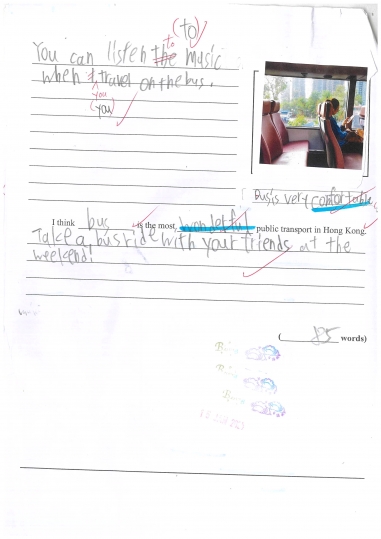 (to)
You can listen to the music
when I travel on the bus.
you
(you)
Bus is very comfortable.
I think bus is the most wonderful public transport in Hong Kong.
Take a bus ride with your friends at the
weekend!
( 85 words)